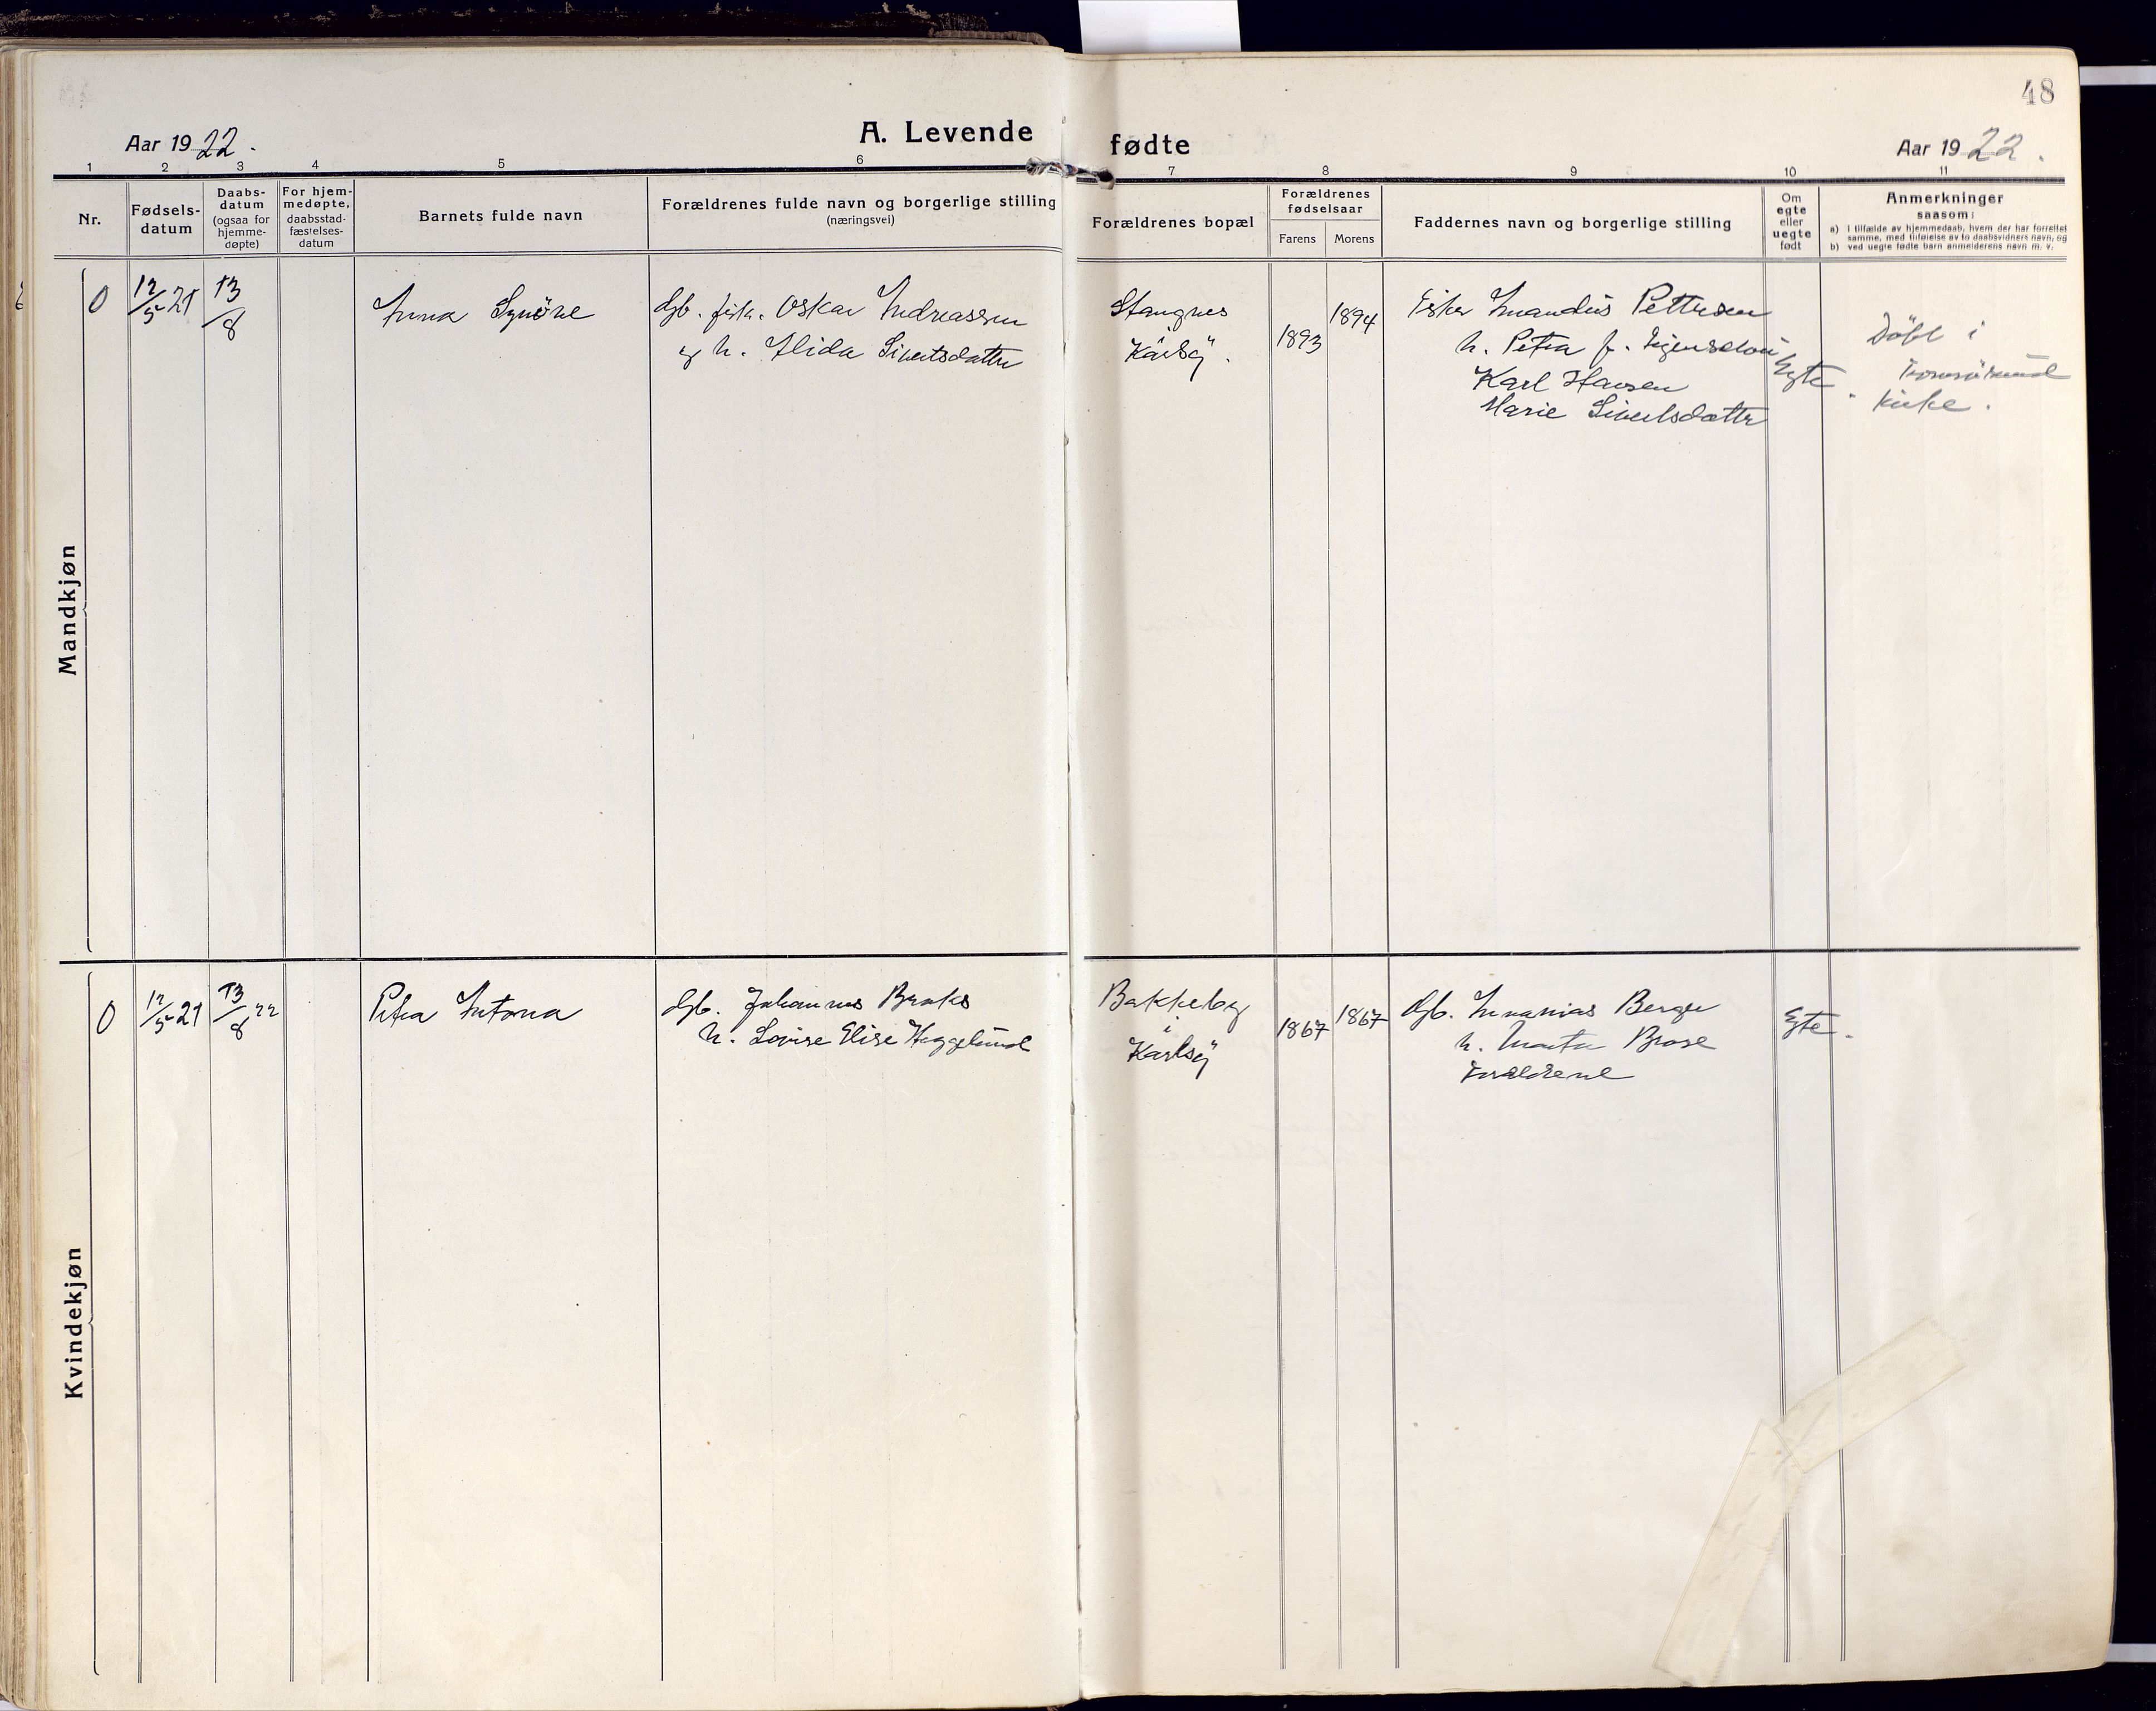 48
Aar 1922.
A. Levende fødte
Aar 1922.
1 2 3 4 5 6 7 8 9 10 11
Nr.
Fødsels-
datum
Daabs-
datum
(ogsaa for
hjemme-
døpte)
For hjem-
medøpte,
daabsstad-
fæstelses-
datum
Barnets fulde navn
Forældrenes fulde navn og borgerlige stilling
(næringsvei)
Forældrenes bopæl
Forældrenes
fødselsaar
Farens
Morens
Faddernes navn og borgerlige stilling
Om
egte
eller
uegte
født
Anmerkninger
saasom:
a) I tilfælde av hjemmedaab, hvem der har forrettet
samme, med tilføielse av to daabsvidners navn, og
b) ved uegte fødte barn anmelderens navn m. v.
Mandkjøn
0
12/5 21
13/8
Anna Synöve
Gb. fisk. Oskar Andreassen
og h. Alida Sivertsdatter
Stangnes
Karlsö.
1893
1894
Fisker Amandus Pettersen
h. Petra f.
Karl Hansen
Marie Sivertsdatter
Egte.
Döbt i
Tromsösund
kirke.
Kvindekjøn
0
12/5 21
13/8 22
Petra Antona
Gb. Johannes Broks
h. Lovise Elise Heggelund
Bakkeby
i
Karlsö
1867
1867
Gb. Ananias Berger
h. Marta Brose
Forældrene
Egte.